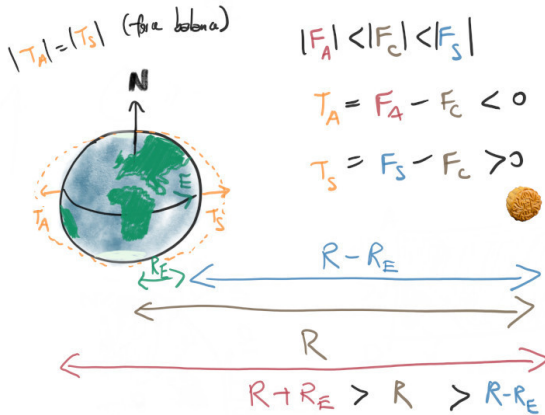 |T_A| = |T_S| (force balance)
|F_A| < |F_C| < |F_S|
T_A = F_A − F_C < 0
T_S = F_S − F_C > 0
N
E
T_A
T_S
R_E
R − R_E
R
R + R_E > R > R − R_E